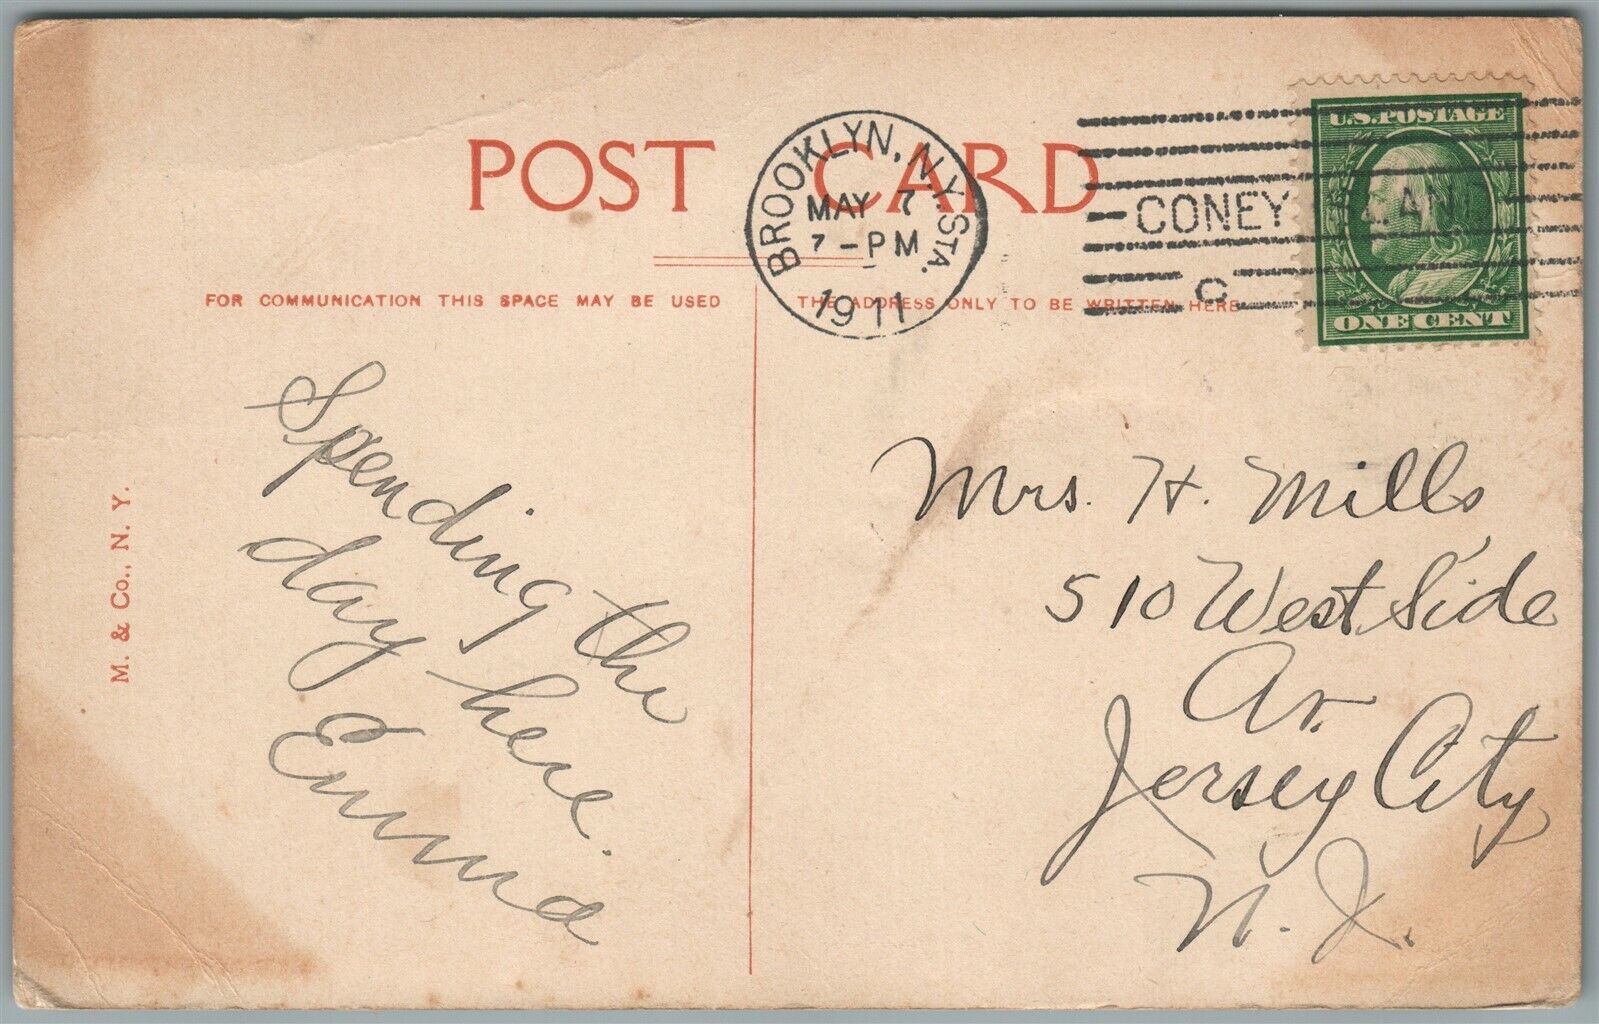 POST CARD
BROOKLYN, N.Y. STA.
MAY 7
7-PM
1911
CONEY
U.S. POSTAGE
ONE CENT
FOR COMMUNICATION THIS SPACE MAY BE USED
THE ADDRESS ONLY TO BE WRITTEN HERE
M. & Co., N. Y.
Spending the
day here.
Emma
Mrs. H. Mills
510 West Side
Av.
Jersey City
N. J.